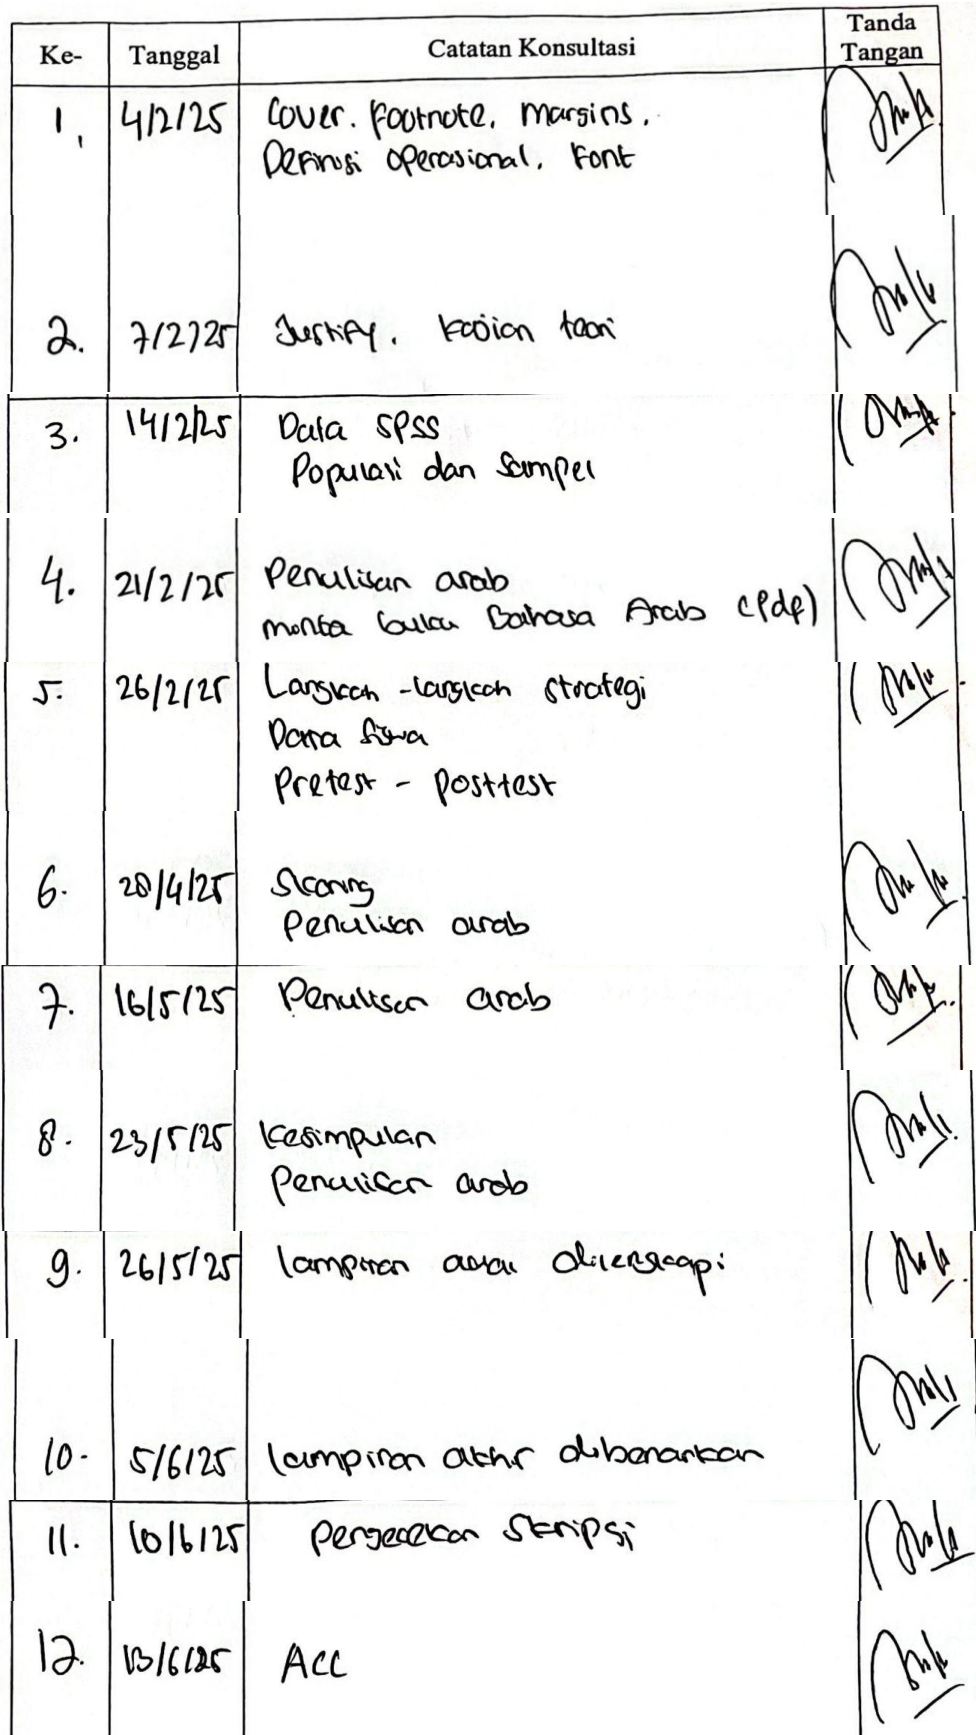 Ke- Tanggal Catatan Konsultasi Tanda Tangan
1. 4/2/25 Cover. Footnote. Margins.
Definisi operasional. Font
2. 7/2/25 Justify. Kajian teori
3. 14/2/25 Data SPSS
Populasi dan Sampel
4. 21/2/25 Penulisan arab
minta buku Bahasa Arab (Pdf)
5. 26/2/25 Langkah-langkah strategi
Data siswa
Pretest - Posttest
6. 28/4/25 Skoring
Penulisan arab
7. 16/5/25 Penulisan arab
8. 23/5/25 Kesimpulan
Penulisan arab
9. 26/5/25 lampiran dilengkapi
10. 5/6/25 lampiran akhir dibenarkan
11. 10/6/25 Pengecekan Skripsi
12. 13/6/25 ACC